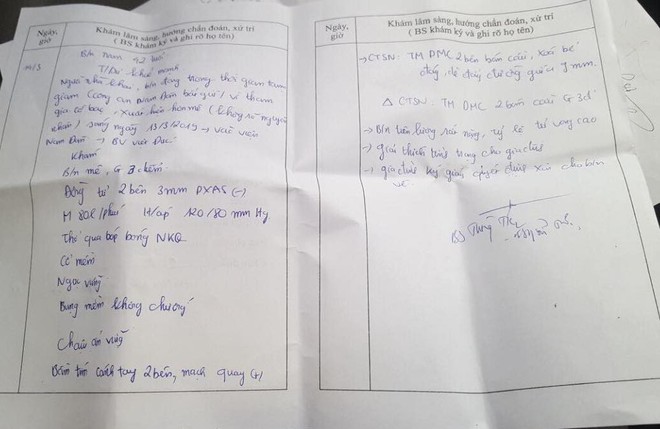 Ngày,
giờ
Khám lâm sàng, hướng chẩn đoán, xử trí
( BS khám ký và ghi rõ họ tên)
B/n nam 42 tuổi
T/s: khoẻ mạnh
Người nhà khai, b/n đang trong thời gian tạm
giam (công an Nam Đàn bắt giữ) vì tham
gia cờ bạc, xuất hiện hôn mê (không rõ nguyên
nhân) sáng ngày 13/3/2019 → vào viện
Nam Đàn → BV
Khám
B/n mê, G 3 điểm
Đồng tử 2 bên 3mm PXAS (-)
M 80l/phút H/áp 120/80 mmHg
Thở qua bóp bóng NKQ
Cổ mềm
Ngực vững
Bụng mềm không chướng
Chậu vững
Bầm tím cánh tay 2 bên, mạch quay (+)
Ngày,
giờ
Khám lâm sàng, hướng chẩn đoán, xử trí
( BS khám ký và ghi rõ họ tên)
→ CTSN: TM DMC 2 bên bán cầu, xoá bể
đáy, đè đẩy đường giữa 7mm.
Δ CTSN. TM DMC 2 bán cầu G 3đ
→ B/n tiên lượng rất nặng, tỷ lệ tử vong cao
→ giải thích tình trạng cho gia đình
→ gia đình ký giấy quyết định xin cho b/n
về
BS